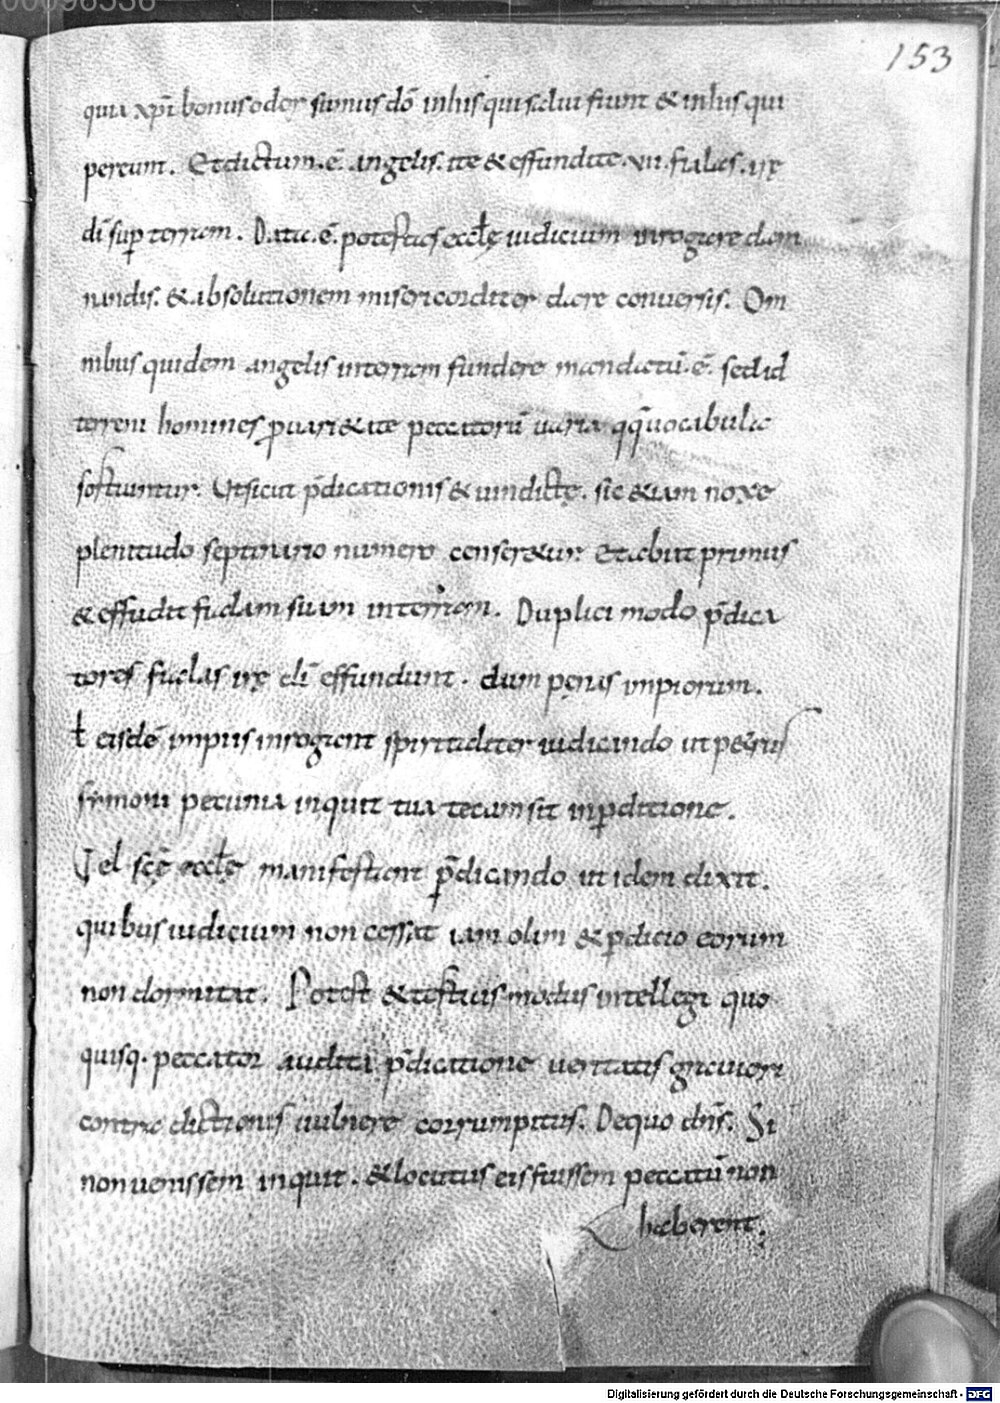 153
quia xpī bonus odor sumus dō in his qui salui fiunt & in his qui
pereunt. Et dictum .ē. angelis. ite & effundite .vii. fialas. irę
dī sup terram. Data .ē. potestas eccłę iudicium inrogare dam
nandis. & absolutionem misericorditer dare conuersis. Om
nibus quidem angelis in terram fundere mandatū .ē. sed id
terreni homines p uarietate peccatorū uaria qq̄ uocabula
sortiuntur. Ut sicut p̄dicationis & uindictę. sic etiam noxe
plenitudo septinario numero censeretur. Et abiit primus
& effudit fialam suam in terram. Duplici modo p̄dica
tores fialas irę dī effundunt. dum pętrus impiorum.
ł eisdē impiis inrogant spiritaliter iudicando ut petrus
simoni pecunia inquit tua tecum sit in pditione.
Vel scę̄ eccłę manifestant p̄dicando ut idem dixit.
quibus iudicium non cessat iam olim & pdicio eorum
non dormitat. Potest & tertius modus intellegi quo
quisq. peccator audita p̄dicatione ueritatis grauiori
contradictionis uulnere corrumpitur. De quo dn̄s. Si
non uenissem inquit. & locutus eis fuissem peccatū non
haberent;
Digitalisierung gefördert durch die Deutsche Forschungsgemeinschaft - DFG